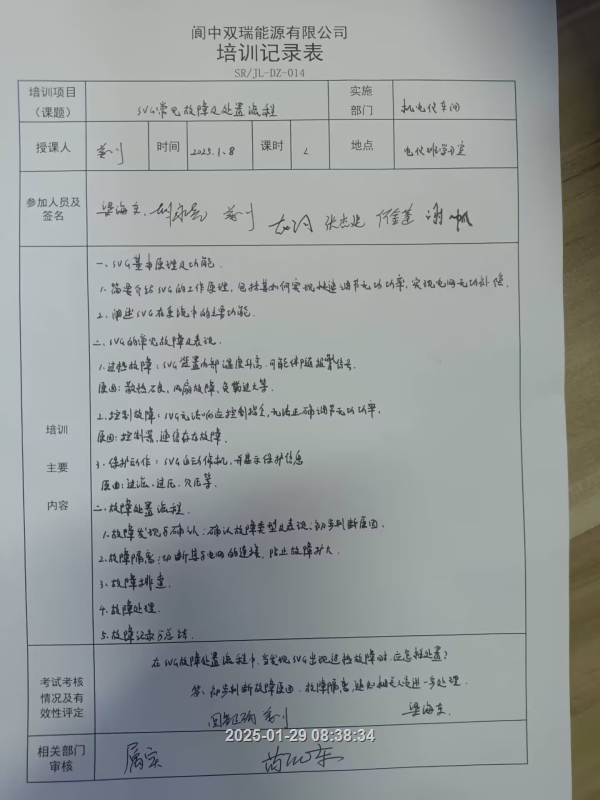 阆中双瑞能源有限公司
培训记录表
SR/JL-DZ-014
培训项目
（课题）
SVG常见故障及处置流程
实施
部门
机电仪车间
授课人
时间
2025.1.8
课时
2
地点
电仪班学习室
参加人员及
签名
梁海东
培训
主要
内容
一、SVG基本原理及功能.
1.简要介绍SVG的工作原理,包括其如何实现快速调节无功功率,实现电网无功补偿.
2.阐述SVG在系统中的主要功能.
二、SVG的常见故障及表现.
1.过热故障:SVG装置内部温度升高,可能伴随报警信号.
原因:散热不良,风扇故障,负荷过大等.
2.控制故障:SVG无法响应控制指令,无法正确调节无功功率.
原因:控制器,通信存在故障.
3.保护动作:SVG自动停机,并显示保护信息
原因:过流、过压、欠压等.
三、故障处置流程.
1.故障发现与确认:确认故障类型及表现,初步判断原因.
2.故障隔离:切断其与电网的连接,防止故障扩大.
3.故障排查.
4.故障处理.
5.故障记录与总结.
考试考核
情况及有
效性评定
在SVG故障处置流程中,当发现SVG出现过热故障时,应怎样处置?
答:初步判断故障原因,故障隔离,通知相关人员进一步处理.
回答正确
梁海东.
2025-01-29 08:38:34
相关部门
审核
属实